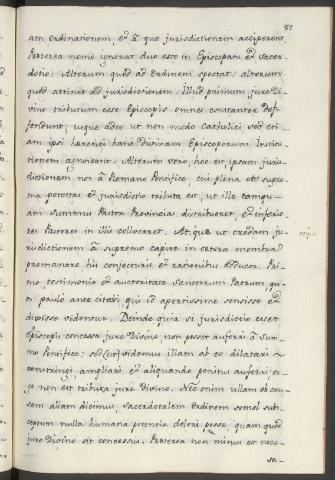 87
am Ordinationem, & á quo jurisdictionem acciperent.
Praeterea nemo ignorat duo esse in Episcopatu & Sacer-
dotio: Alterum quod ad Ordinem spectat: alterum
quod attinet ad jurisdictionem. Illud primum jure Di-
vino tributum esse Episcopis omnes constanter def-
fendunt; usque adeo ut non modo Catholici sed eti-
am ipsi haeretici hanc Divinam Episcoporum Institu-
tionem agnoscant. Alterum vero, hoc est, ipsam juris-
dictionem non á Romano Pontifice, cui plena et supre-
ma potestas & jurisdictio tributa est, ut ille tanqu-
am summus Pastor Provincias distribueret, & inferio-
res Pastores in illis collocaret. At quod ut credam ju-
risdictionem á supremo capite in caetera membra
promanare, his conjecturis & rationibus adducor. Pri-
mo testimonio & auctoritate Sanctorum Patrum, qu-
os paulo ante citabi, qui id apertissime sensisse &
dixisse videntur. Deinde quia si jurisdictio esset
Episcopis concessa jure Divino, non posset auferri á Sum-
mo Pontifice; sed (ut) videmus illam ab eo dilatari
constringi ampliari & aliquando penitus auferri; er-
go non est tributa jure Divino. Nec enim ullam ob cau-
sam aliam dicimus, Sacerdotalem Ordinem semel sus-
ceptum nulla humana potentia deleri posse, quam quod
jure Divino sit concessus. Praeterea non minus est nece-
sa-